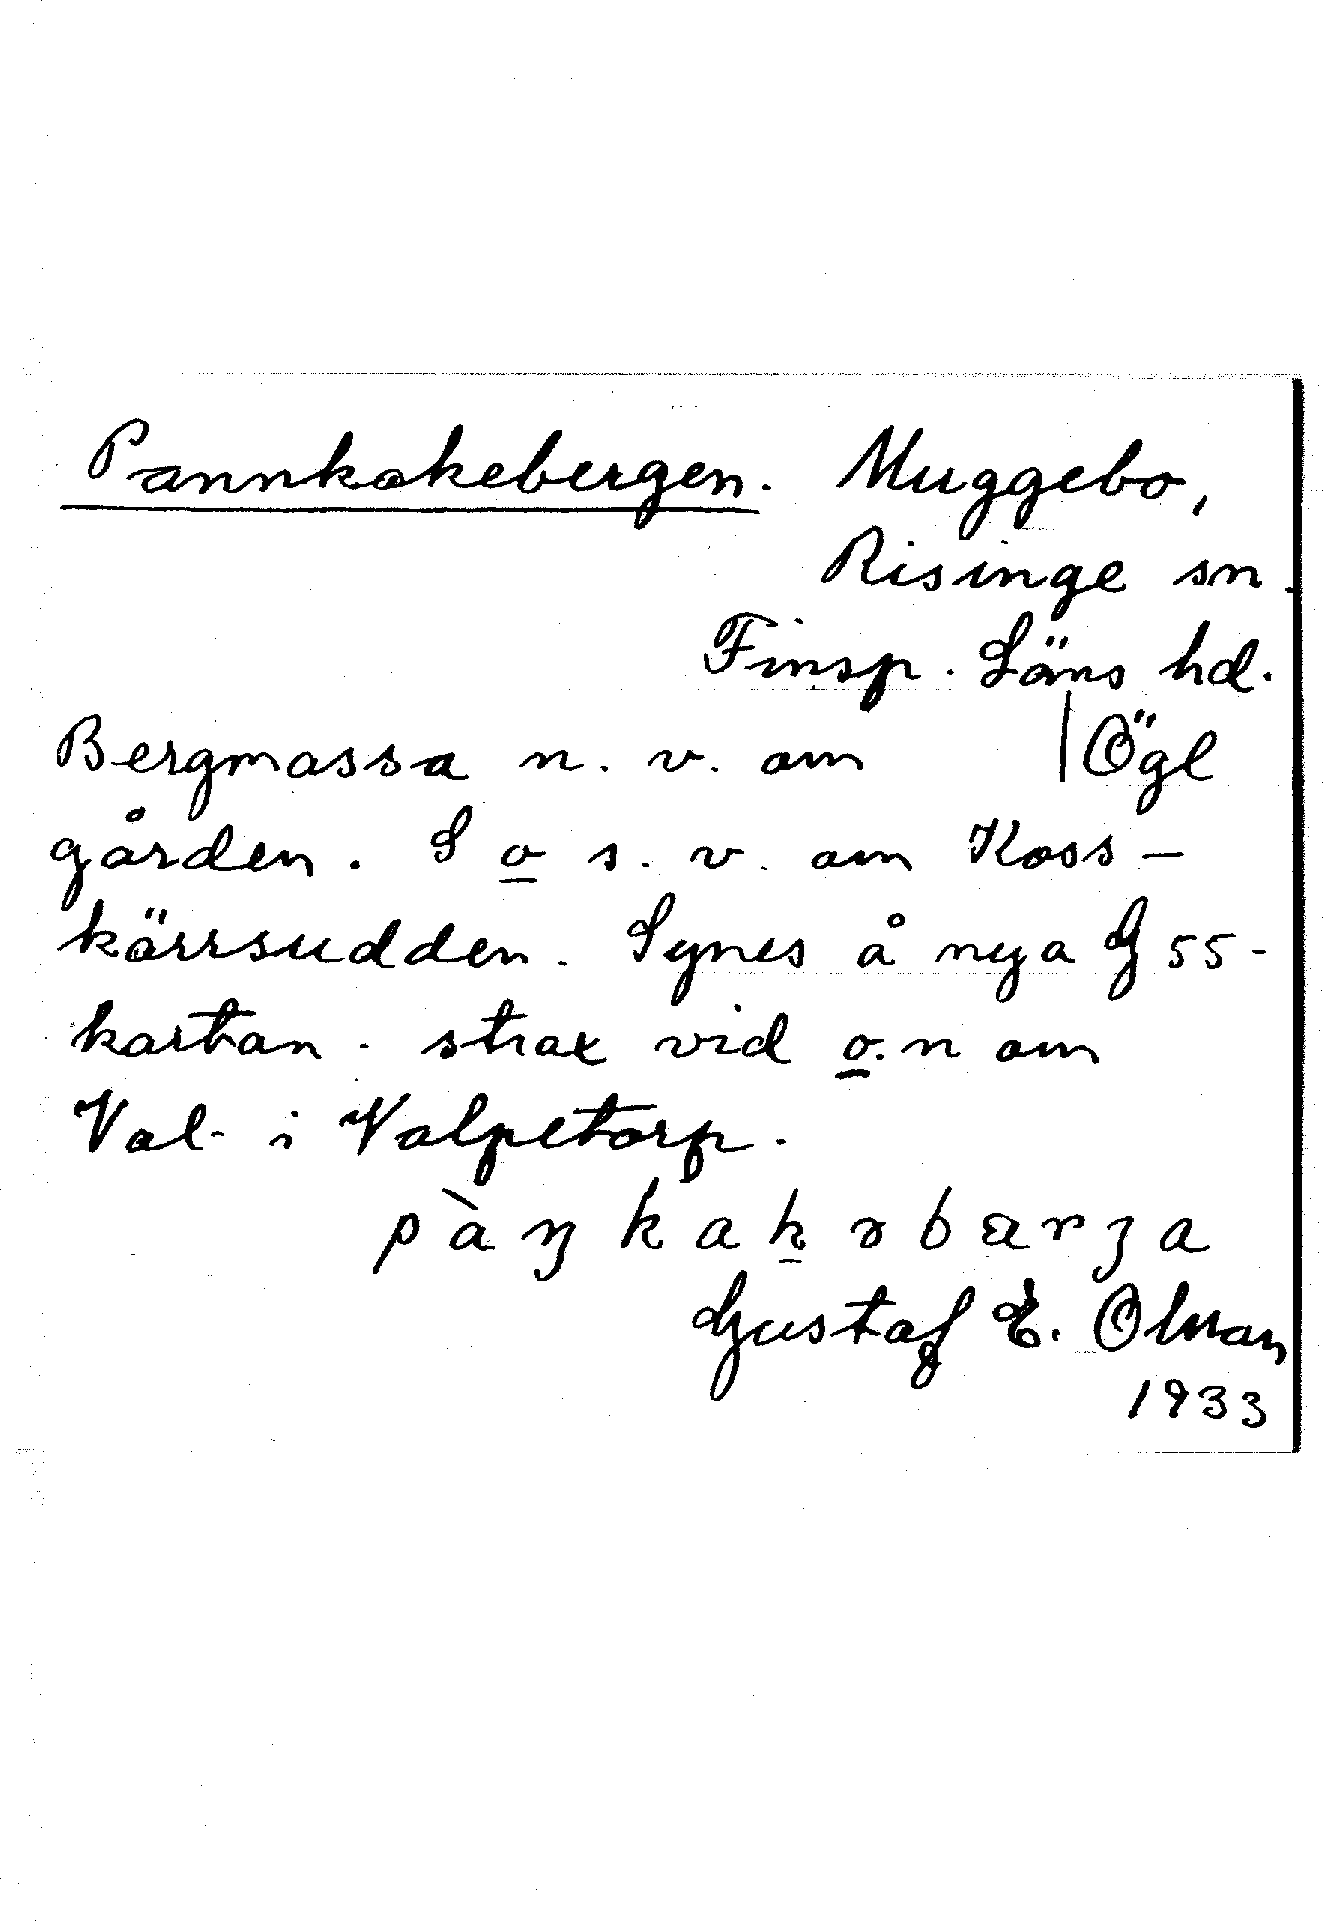 Pannkakebergen. Muggebo,
Risinge sn.
Finsp. Läns hd.
Bergmassa n. v. om | Ögl
gården. S o s. v. om Koss-
kärrsudden. Synes å nya G 55-
kartan. strax vid o. n om
Val- i Valpetorp.
pàŋkakəbærja
Gustaf E. Olman
1933